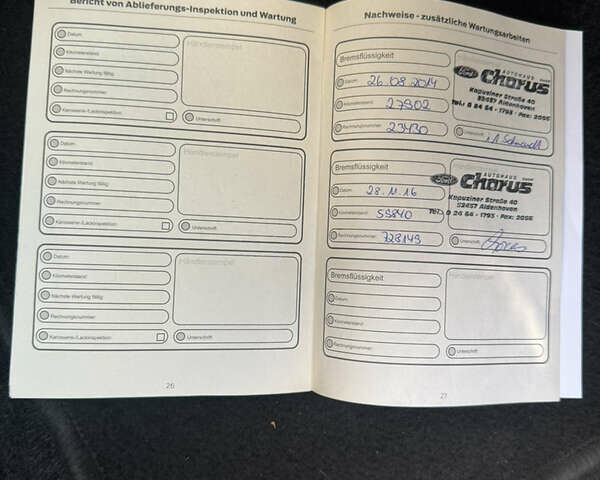 Bericht von Ablieferungs-Inspektion und Wartung
Datum
Kilometerstand
Nächste Wartung fällig
Rechnungsnummer
Karosserie-/Lackinspektion
Händlerstempel
Unterschrift
Datum
Kilometerstand
Nächste Wartung fällig
Rechnungsnummer
Karosserie-/Lackinspektion
Händlerstempel
Unterschrift
Datum
Kilometerstand
Nächste Wartung fällig
Rechnungsnummer
Karosserie-/Lackinspektion
Händlerstempel
Unterschrift
26
Nachweise - zusätzliche Wartungsarbeiten
Bremsflüssigkeit
Datum 26.08.2014
Kilometerstand 27902
Rechnungsnummer 23430
AUTOHAUS
Ford Charus
Kapuziner Straße 40
52457 Aldenhoven
Tel.: 0 24 64 - 1793 · Fax: 2056
Unterschrift
Bremsflüssigkeit
Datum 28.11.16
Kilometerstand 55840
Rechnungsnummer 728149
AUTOHAUS
Ford Charus
Kapuziner Straße 40
52457 Aldenhoven
Tel.: 0 24 64 - 1793 · Fax: 2056
Unterschrift
Bremsflüssigkeit
Datum
Kilometerstand
Rechnungsnummer
Händlerstempel
Unterschrift
27